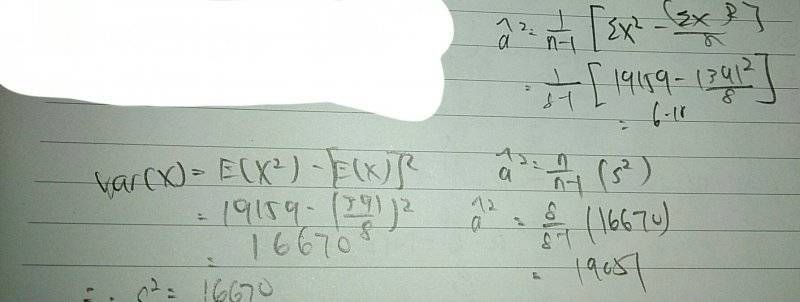 â² = 1/(n-1) [Σx² - (Σx)²/n]
= 1/(8-1) [19159 - (391)²/8]
= 6.98
Var(X) = E(X²) - [E(X)]²
= 19159 - (391/8)²
= 16670
∴ s² = 16670
â² = n/(n-1) (s²)
â² = 8/(8-1) (16670)
= 19051